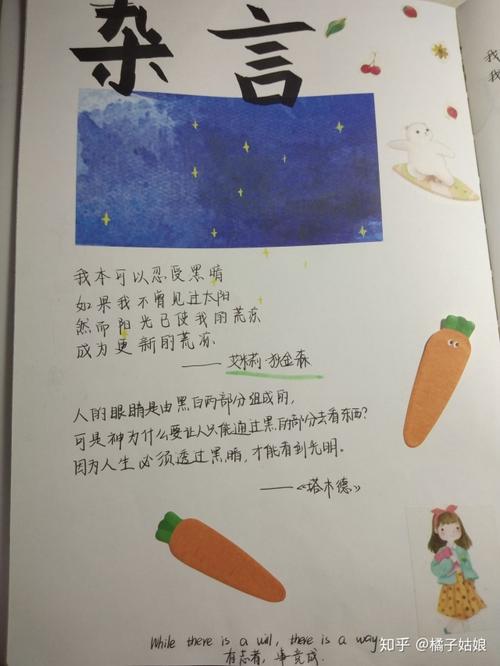 杂言
我本可以忍受黑暗
如果我不曾见过太阳
然而阳光已使我的荒凉
成为更新的荒凉
——艾米莉·狄金森
人的眼睛是由黑白两部分组成的,
可是神为什么要让人只能通过黑的部分去看东西?
因为人生必须透过黑暗,才能看到光明。
——《塔木德》
While there is a will, there is a way
有志者,事竟成.
知乎 @橘子姑娘
我
我